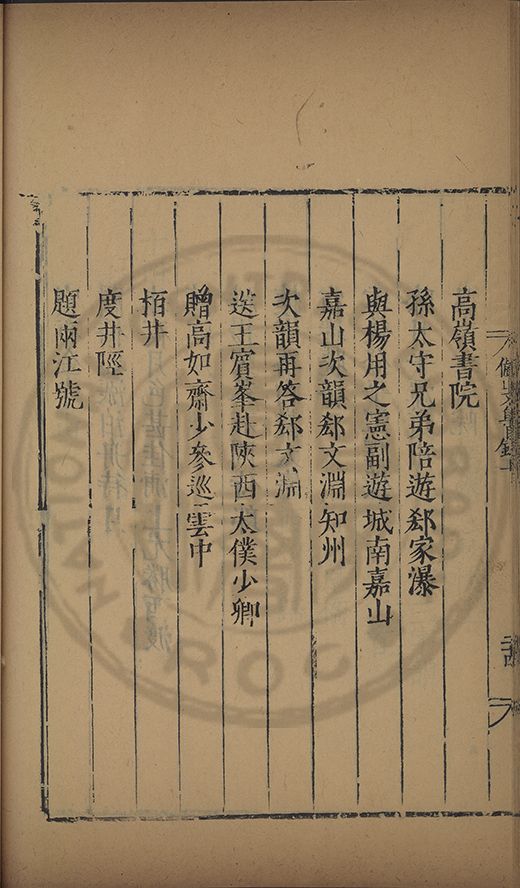 高嶺書院
孫太守兄弟陪遊郄家瀑
與楊用之憲副遊城南嘉山
嘉山次韻郄文淵知州
次韻再答郄文淵
送王賓峯赴陝西太僕少卿
贈高如齋少參巡雲中
栢井
度井陘
題兩江號